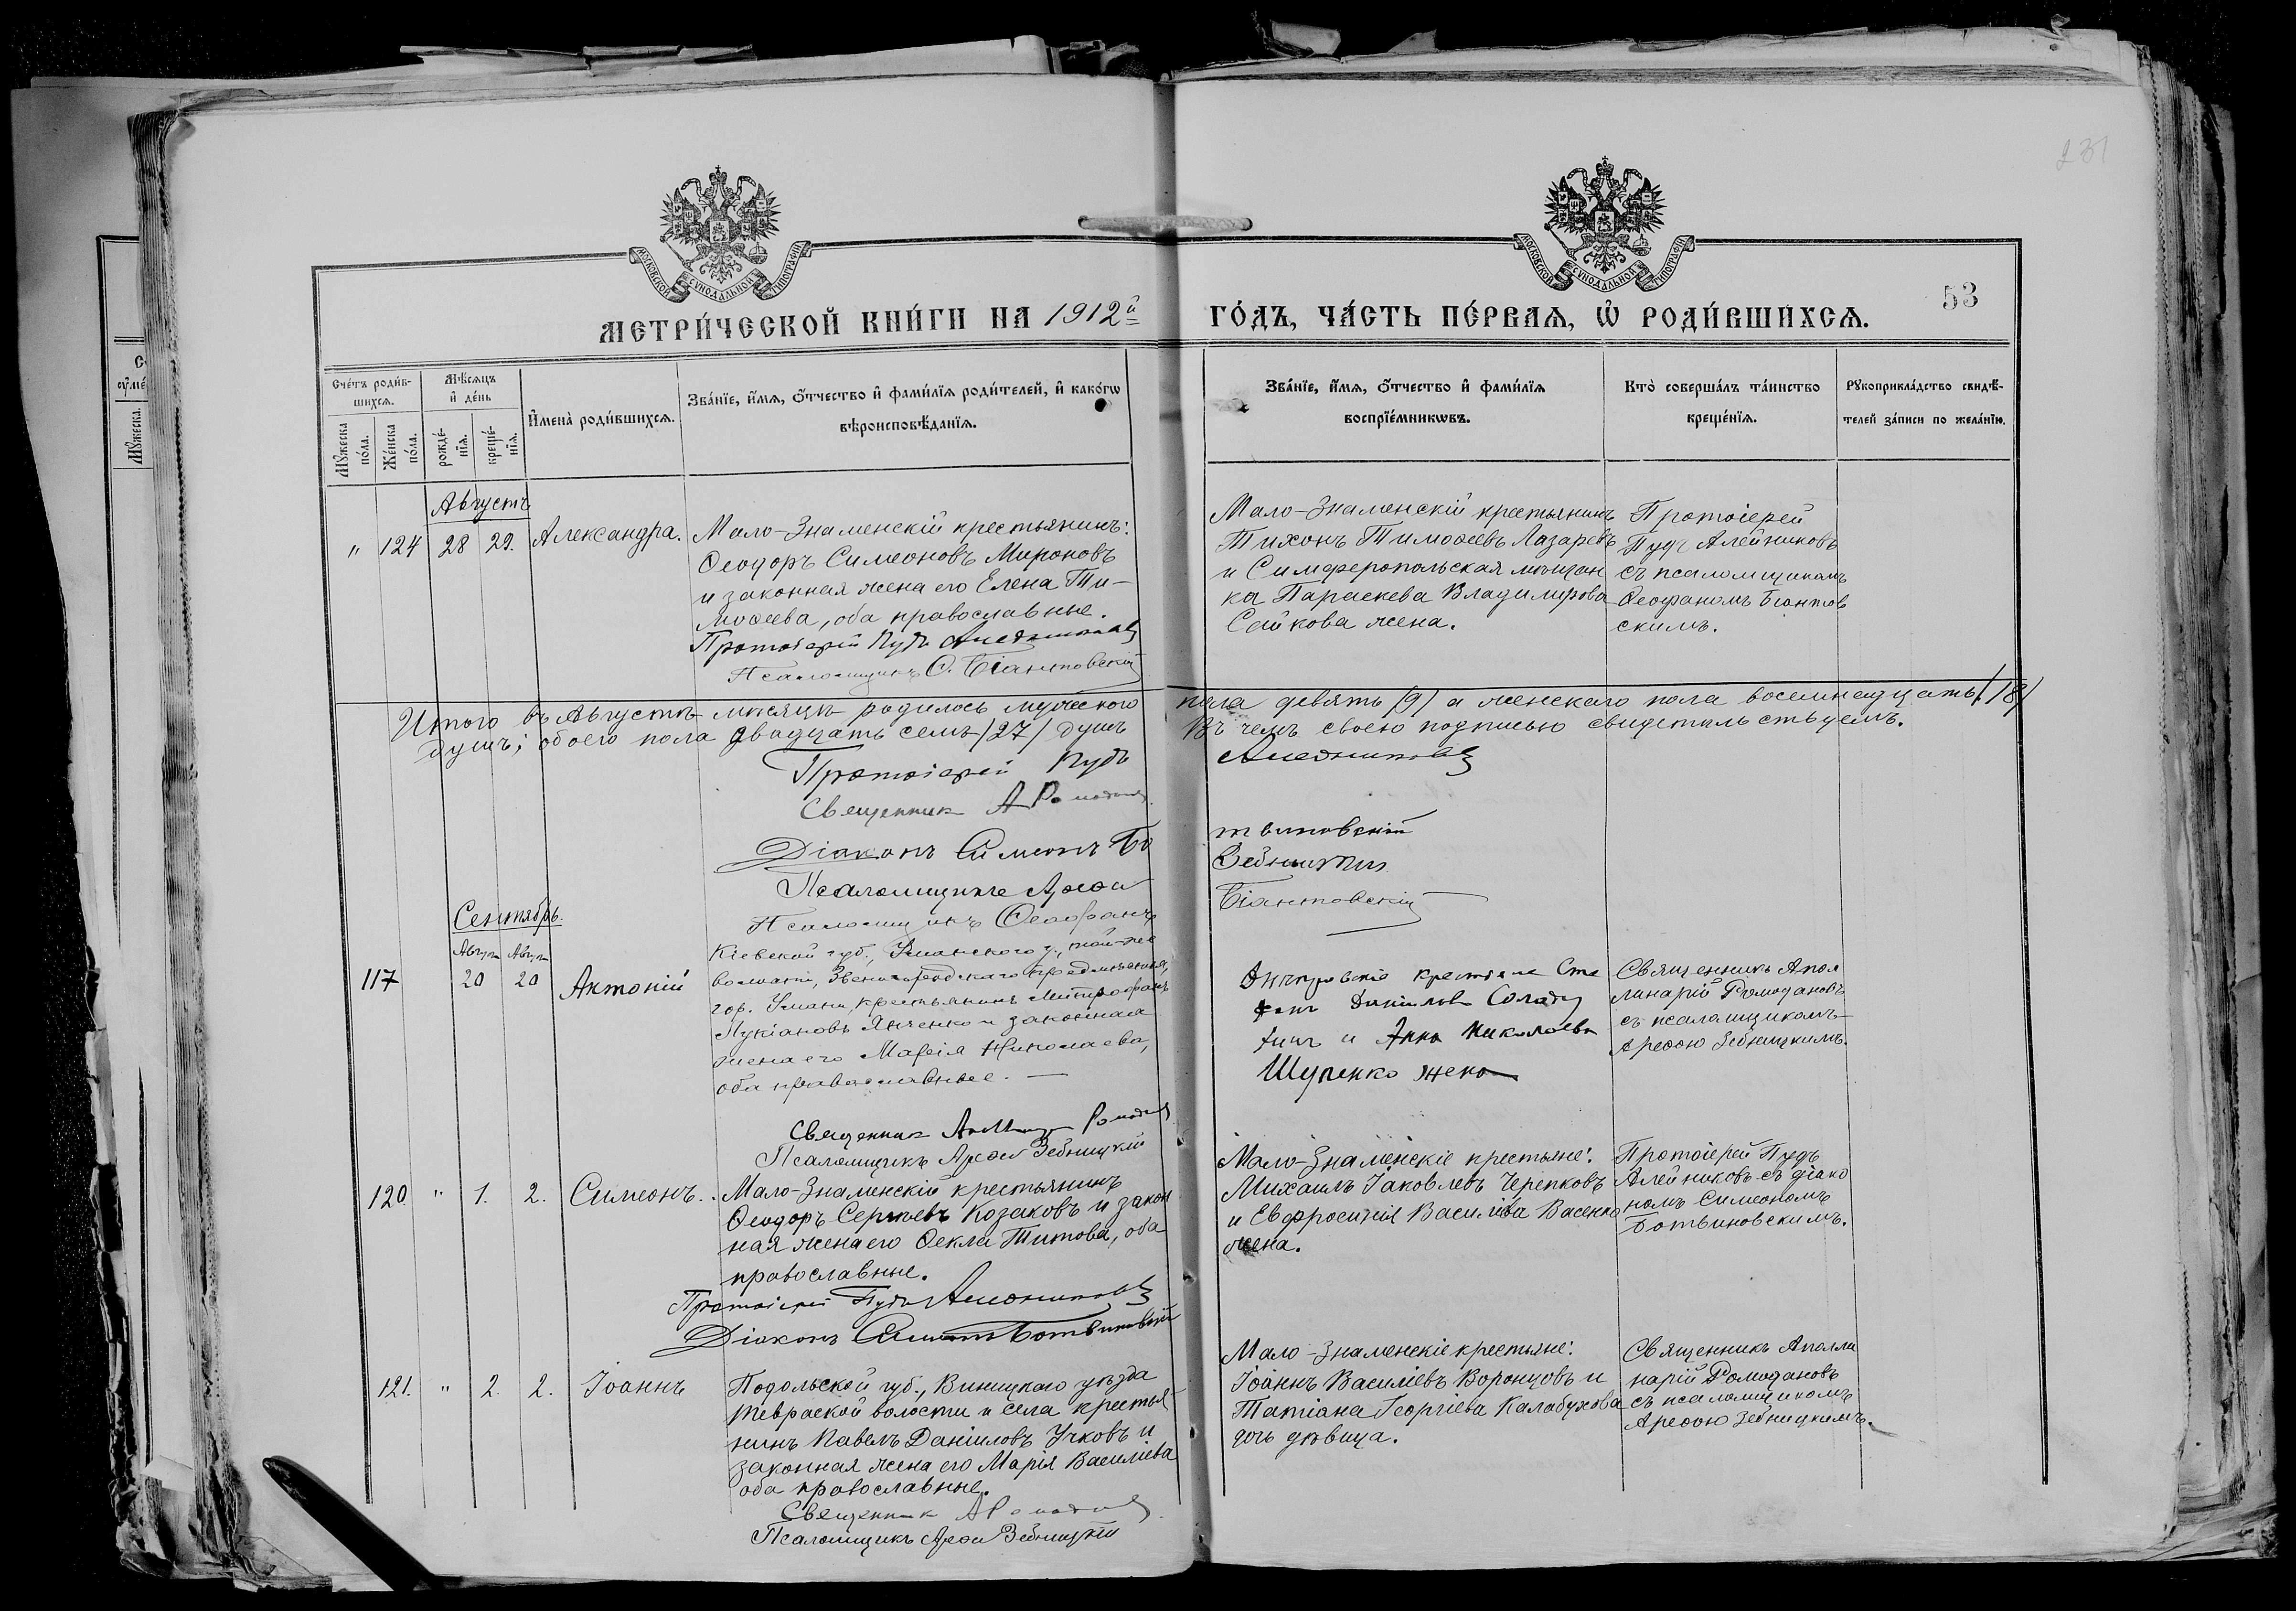 231
МОСКОВСКОЙ СУНОДАЛЬНОЙ ТИПОГРАФІИ
МОСКОВСКОЙ СУНОДАЛЬНОЙ ТИПОГРАФІИ
53
МЕТРИ́ЧЕСКОЙ КНИ́ГИ НА 1912й ГО́ДЪ, ЧА́СТЬ ПЕ́РВАѦ, Ѡ҆ РОДИ́ВШИХСѦ.
Сче́тъ роди́в-
шихсѧ.
Мꙋ́жеска
по́ла.
Же́нска
по́ла.
Мѣ́сѧцъ
и҆ де́нь
рожде́-
нїѧ.
креще́-
нїѧ.
И҆мена̀ роди́вшихсѧ.
Зва́нїе, и҆́мѧ, ѻ҆́тчество и҆ фами́лїѧ роди́телей, и҆ како́гѡ
вѣроисповѣ́данїѧ.
Зва́нїе, и҆́мѧ, ѻ҆́тчество и҆ фами́лїѧ
воспрїе́мникѡвъ.
Кто̀ соверша́лъ та́инство
креще́нїѧ.
Рꙋкоприкла́дство свидѣ́-
телей за́писи по жела́нїю.
Августъ
" 124 28 29. Александра.
Мало-Знаменскій крестьянинъ:
Ѳеодоръ Симеоновъ Мироновъ
и законная жена его Елена Ти-
моѳеева, оба православные.
Протоіерей Пудъ Алейниковъ
Псаломщикъ Ѳ. Біантовскій
Мало-Знаменскій крестьянинъ
Тихонъ Тимоѳеевъ Лазаревъ
и Симферопольская мѣщан
ка Параскева Владимірова
Сайкова жена.
Протоіерей
Пудъ Алейниковъ
съ псаломщикомъ
Ѳеофаномъ Біантов
скимъ.
Итого въ Августѣ мѣсяцѣ родилось мужескаго пола девять (9) а женскаго пола восемнадцать (18)
душъ; обоего пола двадцать семь (27) душъ Въ чемъ своею подписью свидетельствуемъ.
Протоіерей Пудъ Алейниковъ
Священник А Ромоданов
Діаконъ Симеонъ Ботвиновскій
Псаломщикъ Арефа Зебницкій
Псаломщикъ Ѳеофанъ Біантовскій
Сентябрь.
Авгус Авгус
117 20 20 Антоній
Кіевской губ., Уманского у.,
волости, Звенигородскаго предмѣстья,
гор. Умани, крестьянинъ Митрофанъ
Лукіановъ Янченко и законная
жена его Марѳія Николаева,
оба православные.
Священник Ромоданов
Псаломщикъ Арефа Зебницкій
крестьяне Сте
фанъ Даніиловъ
и Анна Николаева
Шупенко жена
Священникъ Апол
линарій Ромодановъ
съ псаломщикомъ
Арефою Зебницкимъ.
120. " 1. 2. Симеонъ.
Мало-Знаменскій крестьянинъ
Ѳеодоръ Сергѣевъ Козаковъ и закон
ная жена его Ѳекла Титова, оба
православные.
Протоіерей Пудъ Алейниковъ
Діаконъ Симеонъ Ботвиновскій
Мало-Знаменскіе крестьяне:
Михаилъ Іаковлевъ Черепковъ
и Евфросинія Василіева Васенко
жена.
Протоіерей Пудъ
Алейниковъ съ діако
номъ Симеономъ
Ботвиновскимъ.
121. " 2. 2. Іоаннъ
Подольской губ., Виницкаго уѣзда
Тывровской волости и села крестья
нинъ Павелъ Даніиловъ Учковъ и
законная жена его Марія Василіева
оба православные.
Священник А Ромоданов
Псаломщикъ Арефа Зебницкій
Мало-Знаменскіе крестьяне:
Іоаннъ Василіевъ Воронцовъ и
Татіана Георгіева Калабухова
дочь дѣвица.
Священникъ Аполли
нарій Ромодановъ
съ псаломщикомъ
Арефою Зебницкимъ.